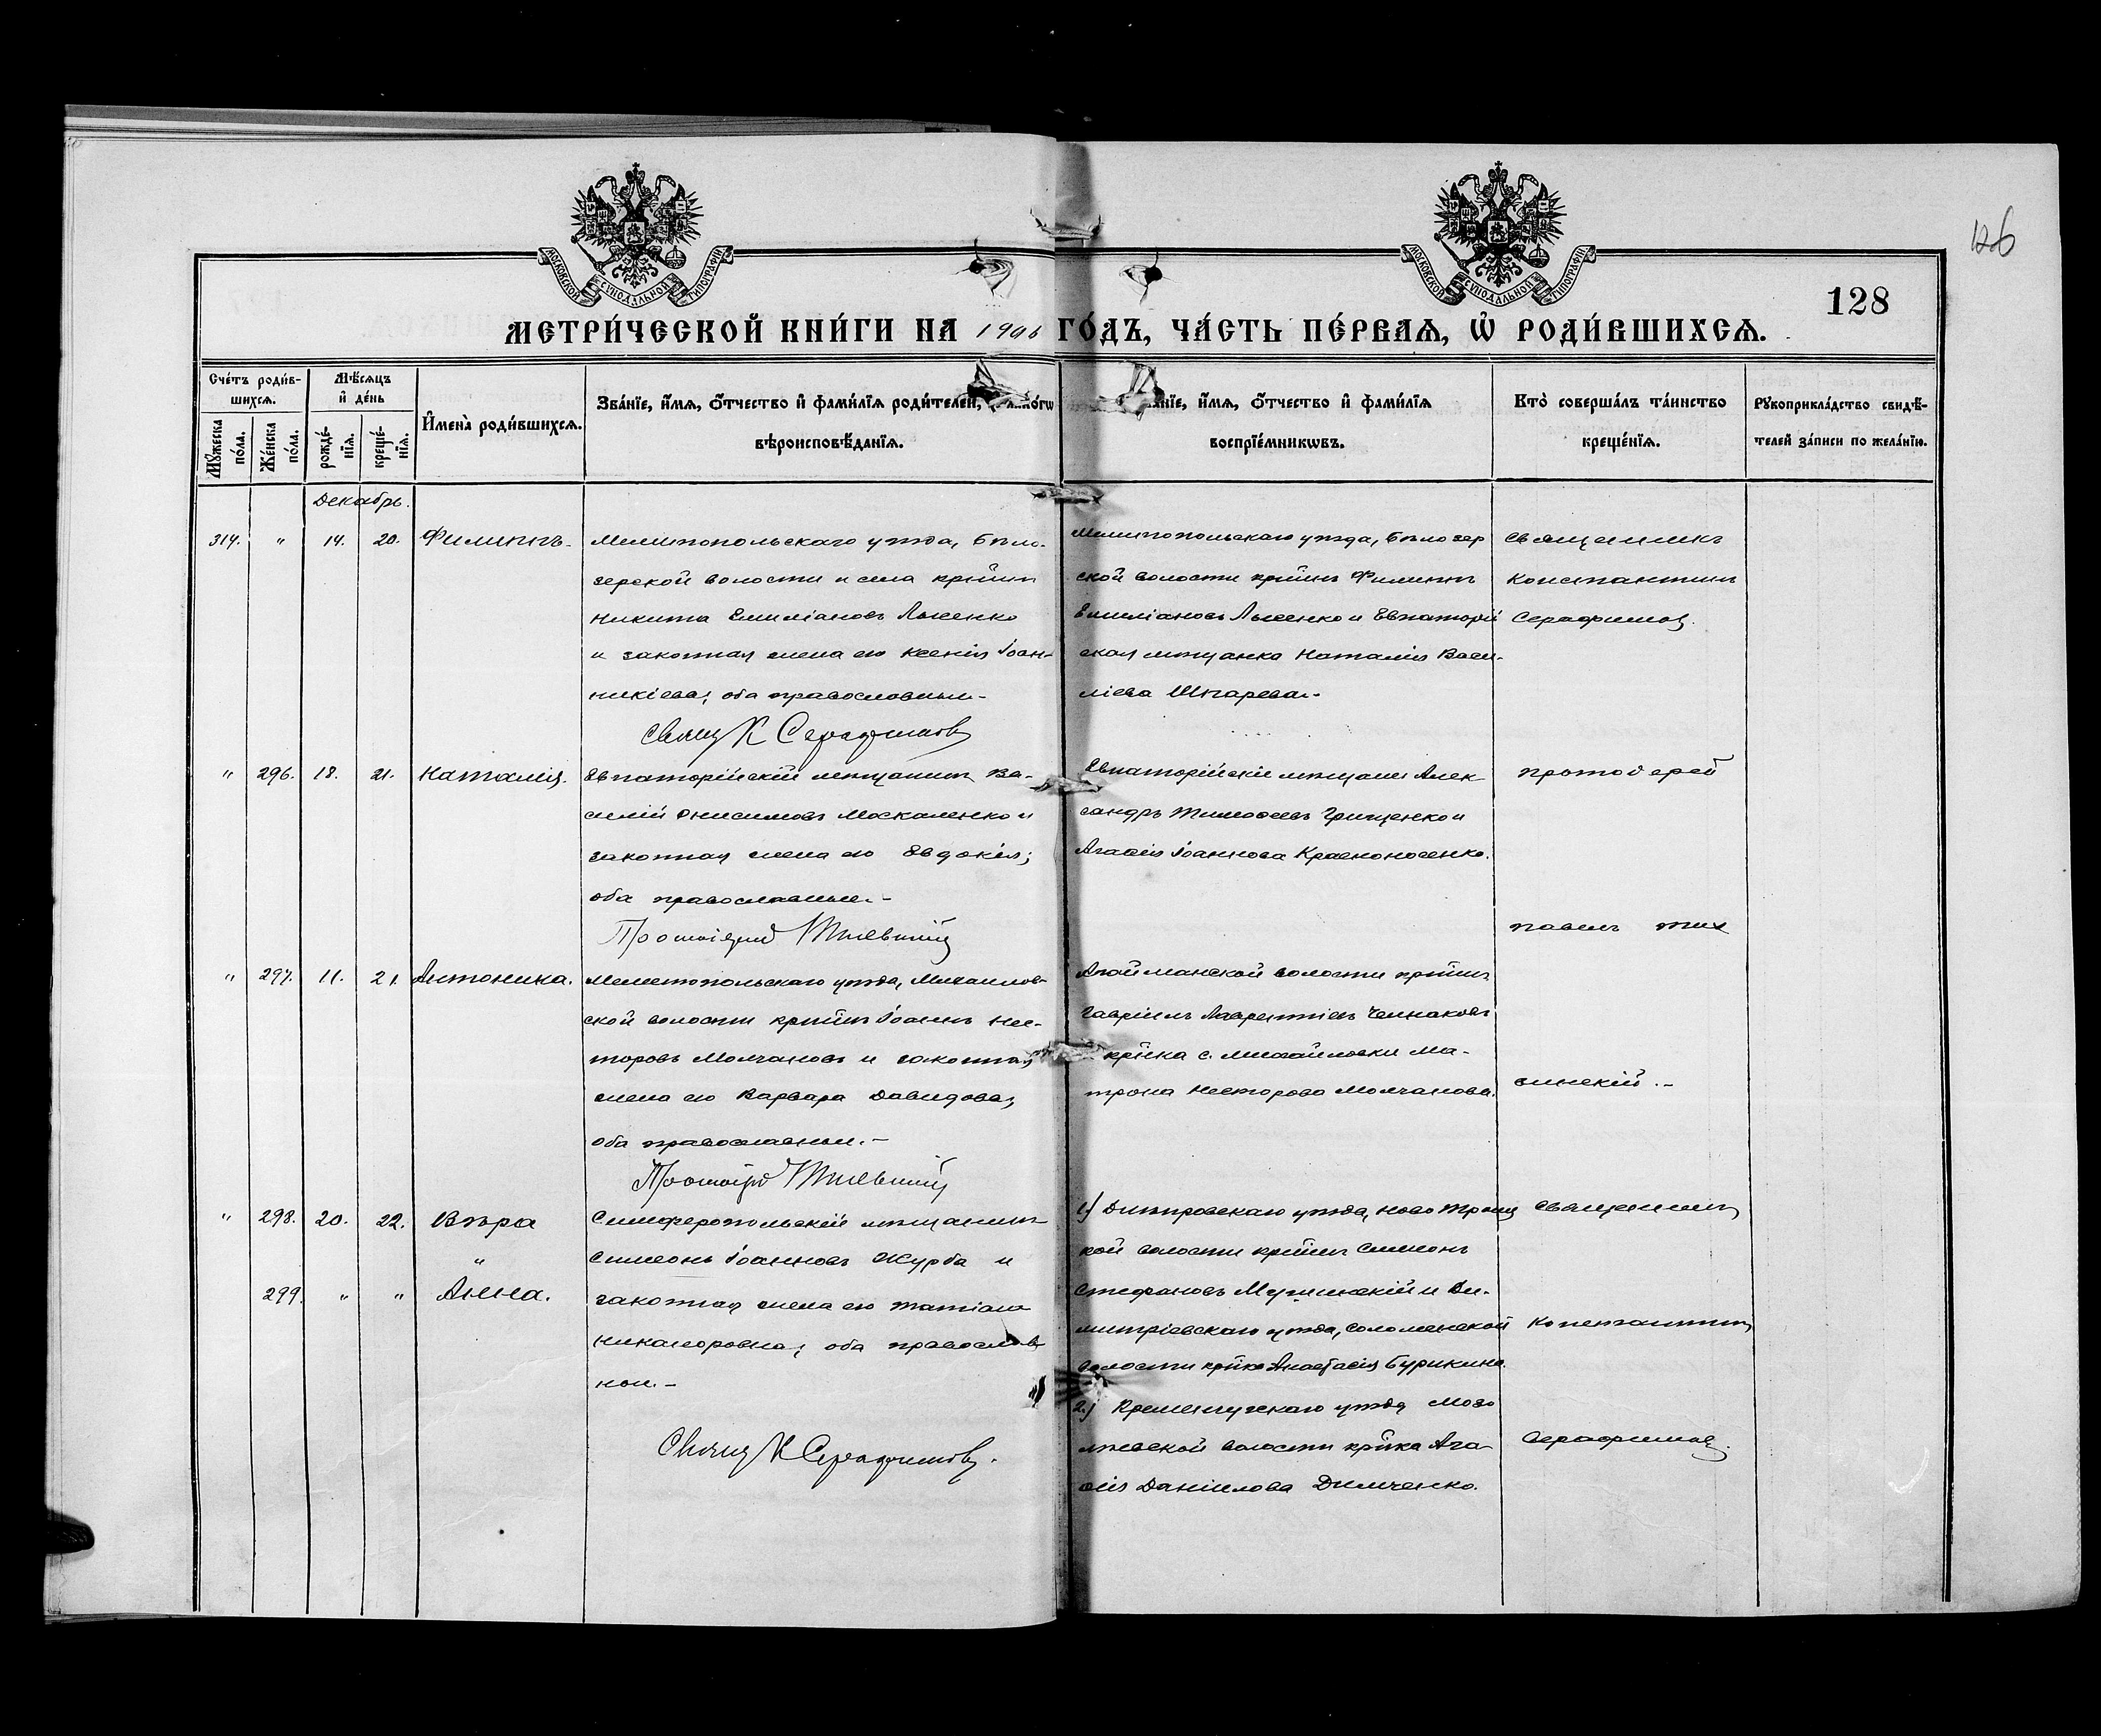 126
128
МОСКОВСКОЙ СУНОДАЛЬНОЙ ТИПОГРАФІИ
МОСКОВСКОЙ СУНОДАЛЬНОЙ ТИПОГРАФІИ
МЕТРИ́ЧЕСКОЙ КНИ́ГИ НА 1906 ГО́ДЪ, ЧА́СТЬ ПЕ́РВАѦ, Ѡ҆ РОДИ́ВШИХСѦ.
Сче́тъ роди́в-
шихсѧ.
Мѣ́сѧцъ
и҆ де́нь
Мꙋ́жеска по́ла.
Же́нска по́ла.
рожде́-
нїѧ.
креще́-
нїѧ.
И҆мена̀ роди́вшихсѧ.
Зва́нїе, и҆́мѧ, ѻ҆́тчество и҆ фами́лїѧ роди́телей,
вѣроисповѣ́данїѧ.
и҆́мѧ, ѻ҆́тчество и҆ фами́лїѧ
воспрїе́мникѡвъ.
Кто̀ соверша́лъ та́инство
креще́нїѧ.
Рꙋкоприкла́дство свидѣ́-
телей за́писи по жела́нїю.
Декабрь.
314. " 14. 20. Филиппъ.
Мелитопольскаго уѣзда, Бѣло-
зерской волости и села кр-йинъ
Никита Емиліановъ Лысенко
и законная жена его Ксенія Іоан-
никіева; оба православные.-
Свящ К Серафимовъ
Мелитопольскаго уѣзда, Бѣлозер
ской волости кр-йинъ Филиппъ
Емиліановъ Лысенко и Евпаторій
ская мѣщанка Наталія Васи-
ліева Шпарева.-
Священникъ
Константинъ
Серафимовъ.
" 296. 18. 21. Наталія.
Евпаторійскій мѣщанинъ Ва-
силій Онисимовъ Москаленко и
законная жена его Евдокія;
оба православные.-
Протоіерей
Евпаторійскіе мѣщане Алек
сандръ Тимоѳеевъ Грищенко и
Агаѳія Іоаннова Красноносенко.
протоіерей
павелъ тих
" 297. 11. 21. Антонина.
Мелитопольскаго уѣзда, Михайлов-
ской волости кр-йинъ Іоаннъ Нес-
торовъ Молчановъ и законная
жена его Варвара Давидова,
оба православные.-
Протоіерей
Агайманской волости кр-йинъ
Гавріилъ Лаврентіевъ
кр-йка с. Михайловки Ма-
трона Несторова Молчанова.
винскій.-
" 298. 20. 22. Вѣра
"
299. " " Анна.
Симферопольскій мѣщанинъ
Симеонъ Іоанновъ Журба и
законная жена его Татіана
Никаноровна; оба православ
ные.-
Свящ К Серафимовъ.
1) Днѣпровскаго уѣзда, Ново Троиц
кой волости кр-йинъ Симеонъ
Стефановъ и Ди-
митріевскаго уѣзда,
волости кр-йка Анастасія Бурикина.
2) Кременчугскаго уѣзда
волости кр-йка Ага-
ѳія Даніилова Димченко.
Священникъ
Константинъ
Серафимовъ.